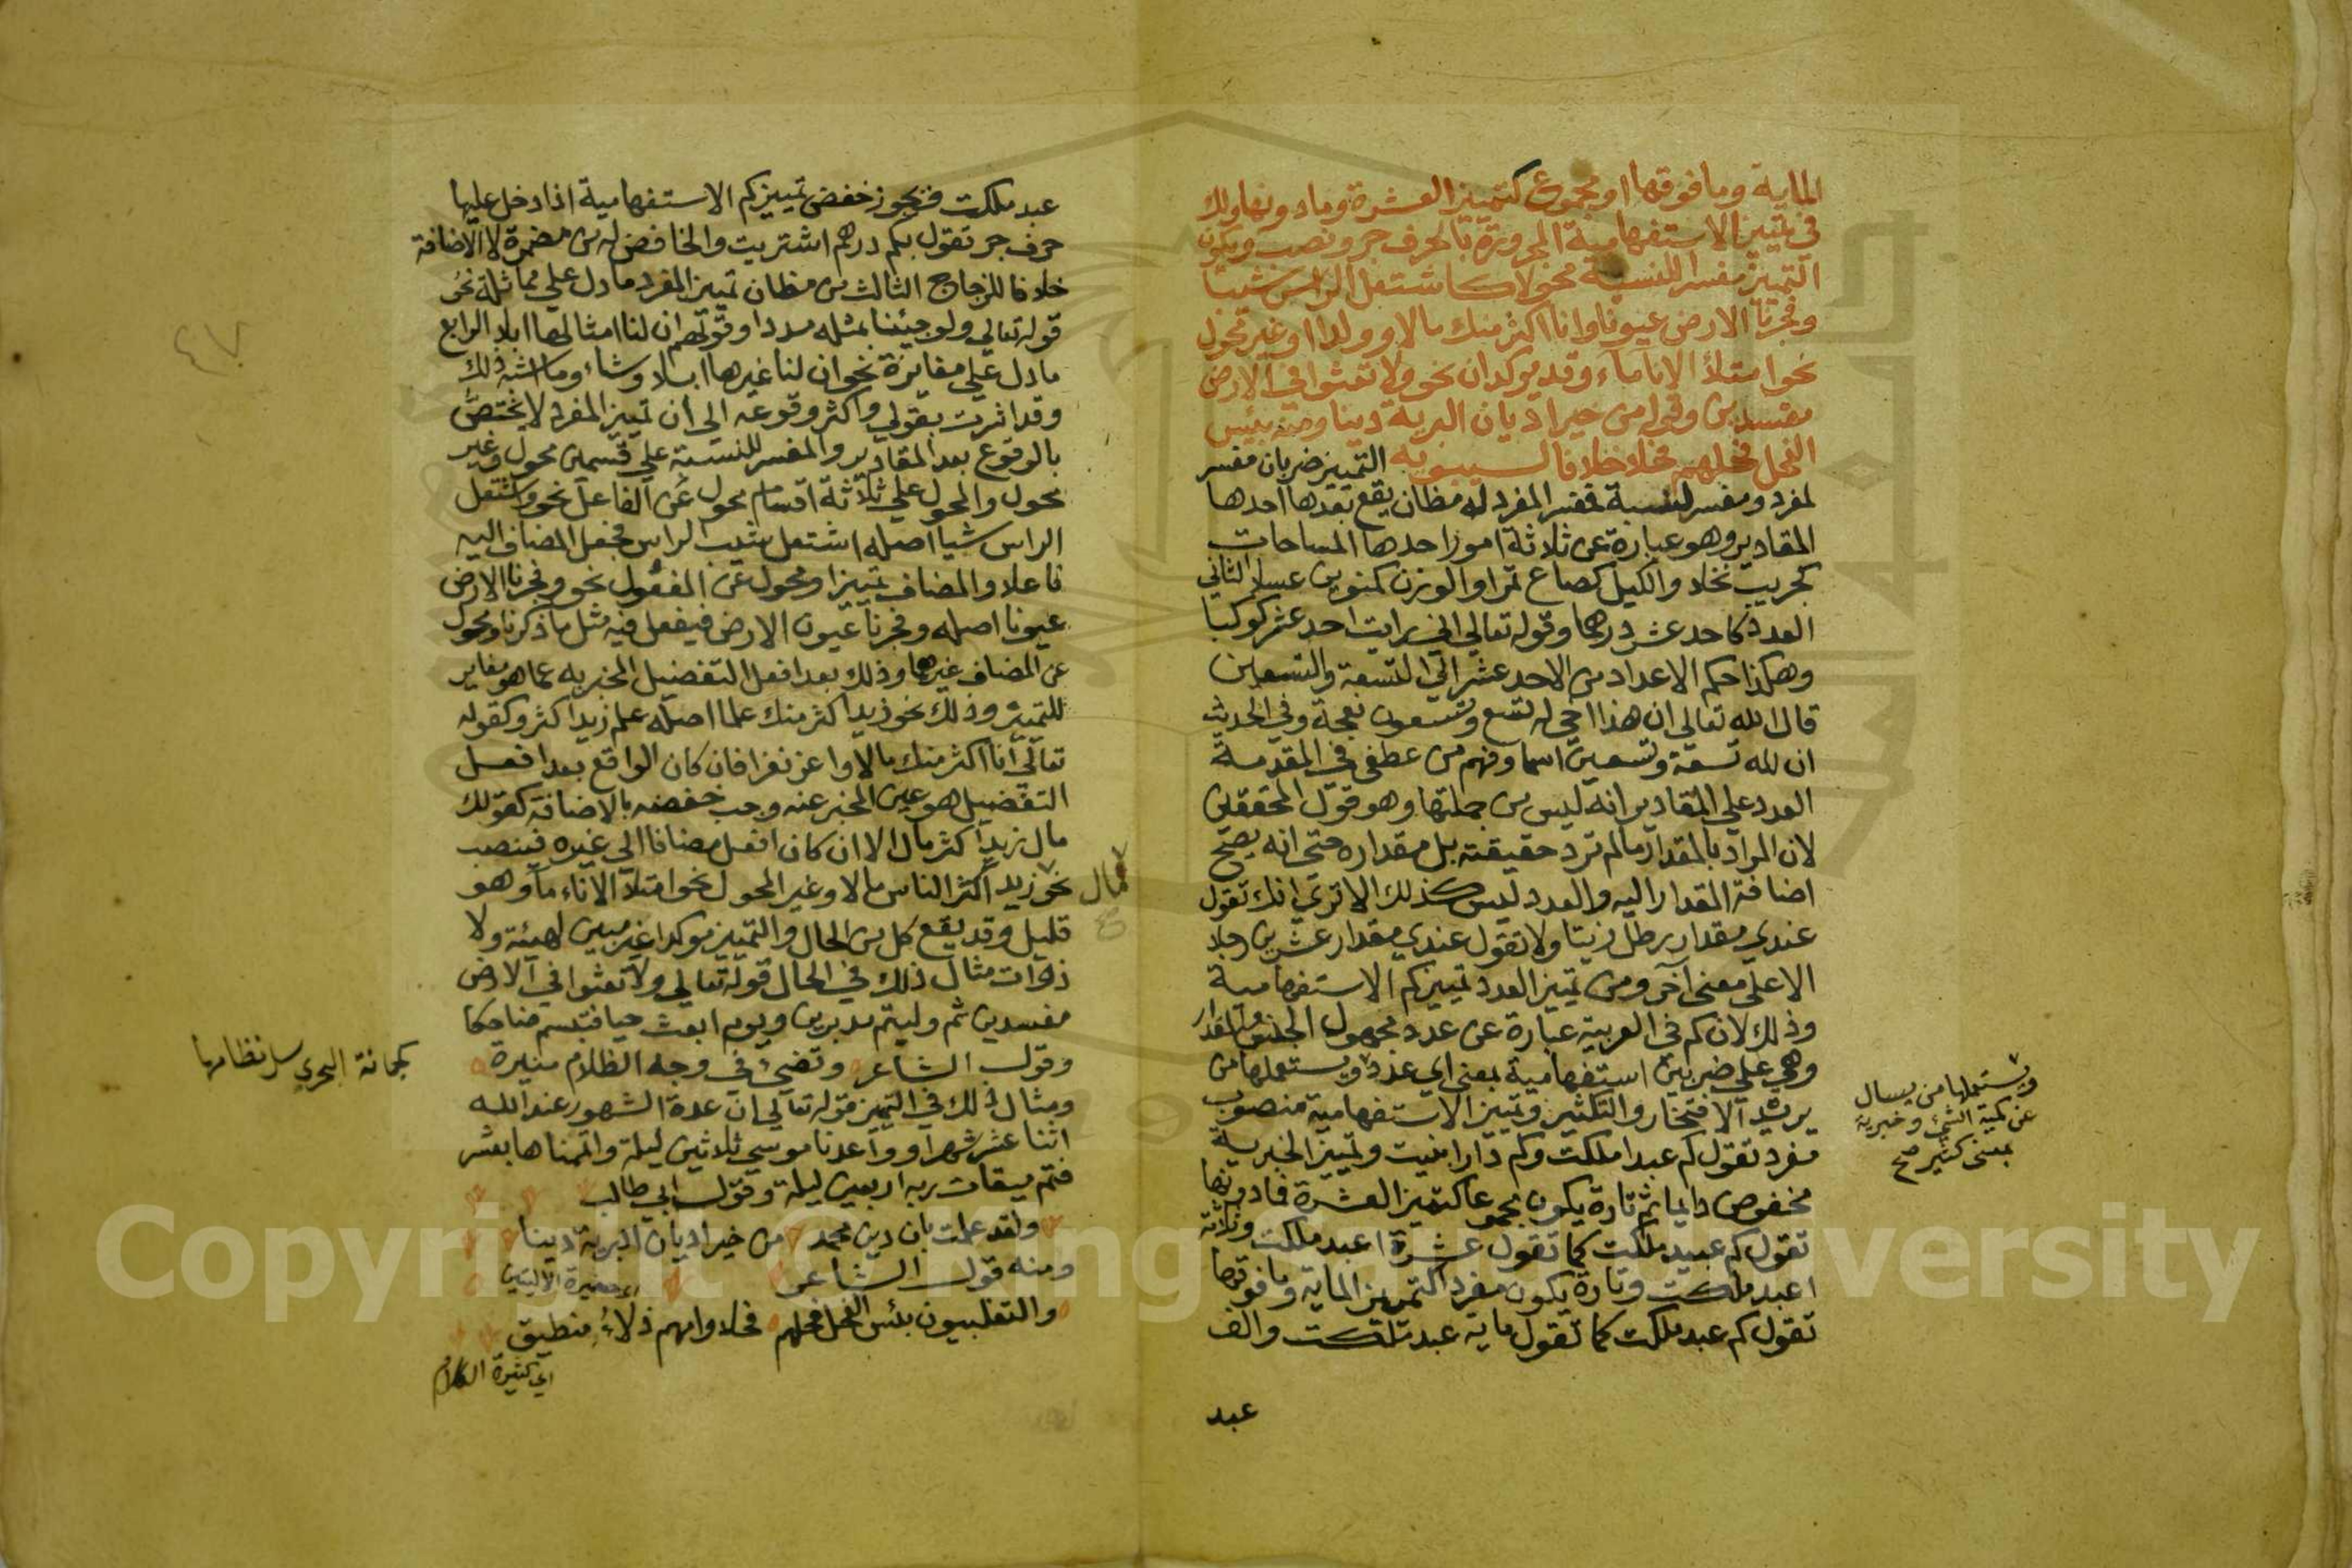 المايه وما فوقها او مجموع كتمييز العشرة وما دونها ولك
في تمييز الاستفهامية المجرورة بالحرف جر ونصب ويكون
التمييز مفسرا للنسبة محولا كاشتعل الراس شيبا
وفجرنا الارض عيونا وانا اكثر منك مالا وولدا او غير محول
نحو امتلأ الانا ماء وقد يوكدان نحو ولا تعثوا في الارض
مفسدين وقوله من خير اديان البرية دينا ومنه بئس
الفحل فحلهم فحلا خلافا لسيبويه التمييز ضربان مفسر
لمفرد ومفسر لنسبة فمفسر المفرد له مظان يقع بعدها احدها
المقادير وهو عبارة عن ثلاثة امور احدها المساحات
كجريب نخلا والكيل كصاع تمرا والوزن كمنوين عسلا الثاني
العدد كاحد عشر درهما وقوله تعالي اني رايت احد عشر كوكبا
وهكذا حكم الاعداد من الاحد عشر الي التسعة والتسعين
قال الله تعالى ان هذا اخي له تسع وتسعون نعجة وفي الحديث
ان لله تسعة وتسعين اسما وفهم من عطفي في المقدمة
العدد علي المقادير انه ليس من جملتها وهو قول المحققين
لان المراد بالمقدار مالم ترد حقيقته بل مقداره حتى انه يصح
اضافة المقدار اليه والعدد ليس كذلك الا تري انك تقول
عندي مقدار رطل زيتا ولا تقول عندي مقدار عشرين رجلا
الا على معنى آخر ومن تمييز العدد تمييز كم الاستفهامية
وذلك لان كم في العربية عبارة عن عدد مجهول الجنس والمقدار
وهي على ضربين استفهامية بمعنى اي عدد ويستعملها من
يريد الافتخار والتكثير وتمييز الاستفهامية منصوب
مفرد تقول كم عبدا ملكت وكم دارا بنيت وتمييز الخبرية
مخفوض دايما ثم تارة يكون مجموعا كتمييز العشرة فما دونها
تقول كم عبيد ملكت كما تقول عشرة اعبد ملكت وثلاثة
اعبد ملكت وتارة يكون مفردا كتمييز الماية وما فوقها
تقول كم عبد ملكت كما تقول ماية عبد ملكت والف
عبد
ويستعملها من يسال
عن كمية الشئ وخبرية
بمعنى كثير صح
عبد ملكت ويجوز خفض تمييز كم الاستفهامية اذا دخل عليها
حرف جر تقول بكم درهم اشتريت والخافض له من مضمرة لا الاضافة
خلافا للزجاج الثالث من مظان تمييز المفرد ما دل علي مماثلة نحو
قوله تعالي ولو جيئنا بمثله مددا وقولهم ان لنا امثالها ابلا الرابع
ما دل على مغايرة نحو ان لنا غيرها ابلا وشاء وما اشبه ذلك
وقد اثرت بقولي واكثر وقوعه الى ان تمييز المفرد لا يختص
بالوقوع بعد المقادير والمفسر للنسبة علي قسمين محول وغير
محول والمحول علي ثلاثة اقسام محول عن الفاعل نحو واشتعل
الراس شيبا اصله اشتعل شيب الراس فجعل المضاف اليه
فاعلا والمضاف تمييزا ومحول عن المفعول نحو وفجرنا الارض
عيونا اصله وفجرنا عيون الارض فيفعل فيه مثل ما ذكرنا ومحول
عن المضاف غيرهما وذلك بعد افعل التفضيل المخبر به عما هو مغاير
للتمييز وذلك نحو زيد اكثر منك علما اصله علم زيد اكثر وكقوله
تعالي انا اكثر منك مالا واعز نفرا فان كان الواقع بعد افعل
التفضيل هو عين المخبر عنه وجب خفضه بالاضافة كقولك
مال زيد اكثر مال الا ان كان افعل مضافا الى غيره فينصب
نحو زيد اكثر الناس مالا وغير المحول نحو امتلأ الاناء ماء وهو
قليل وقد يقع كل من الحال والتمييز موكدا غير مبين لهيئة ولا
ذوات مثال ذلك في الحال قوله تعالي ولا تعثوا في الارض
مفسدين ثم وليتم مدبرين ويوم ابعث حيا فتبسم ضاحكا
وقول الشاعر وتضئ في وجه الظلام منيرة
ومثال ذلك في التمييز قوله تعالي ان عدة الشهور عند الله
اثنا عشر شهرا وواعدنا موسي ثلاثين ليلة واتممناها بعشر
فتم ميقات ربه اربعين ليلة وقول ابي طالب
ولقد علمت بان دين محمد من خير اديان البرية دينا
ومنه قول الشاعر
والتغلبيون بئس الفحل فحلهم فحلا وامهم زلاء منطيق
اي كثيرة الكلام
مال
كجمانة البحري سل نظامها
٤٧
Copyright © King Saud University